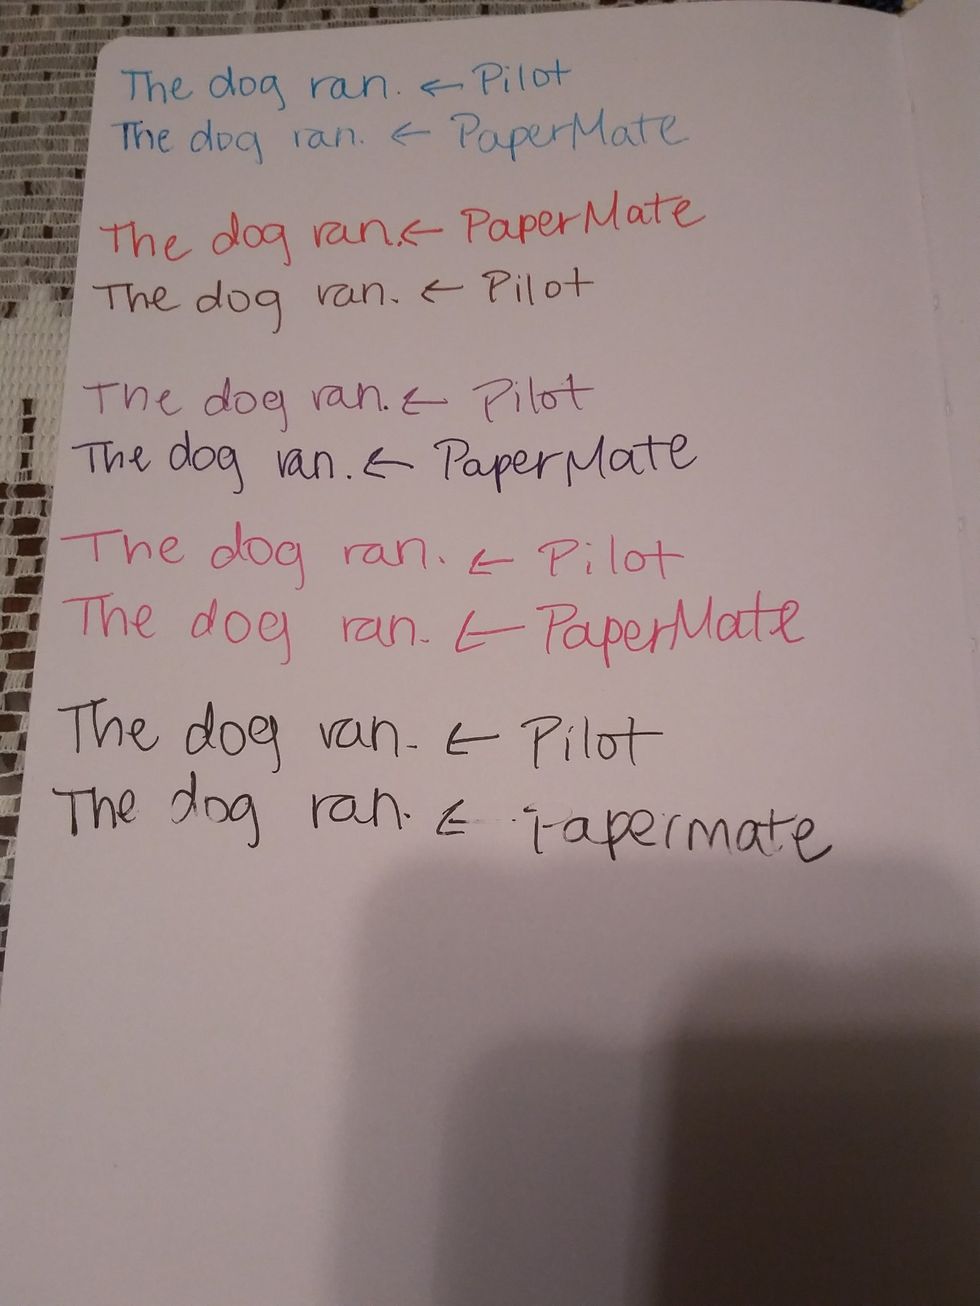 The dog ran. ← Pilot
The dog ran. ← PaperMate
The dog ran. ← PaperMate
The dog ran. ← Pilot
The dog ran. ← Pilot
The dog ran. ← PaperMate
The dog ran. ← Pilot
The dog ran. ← PaperMate
The dog ran. ← Pilot
The dog ran. ← Papermate